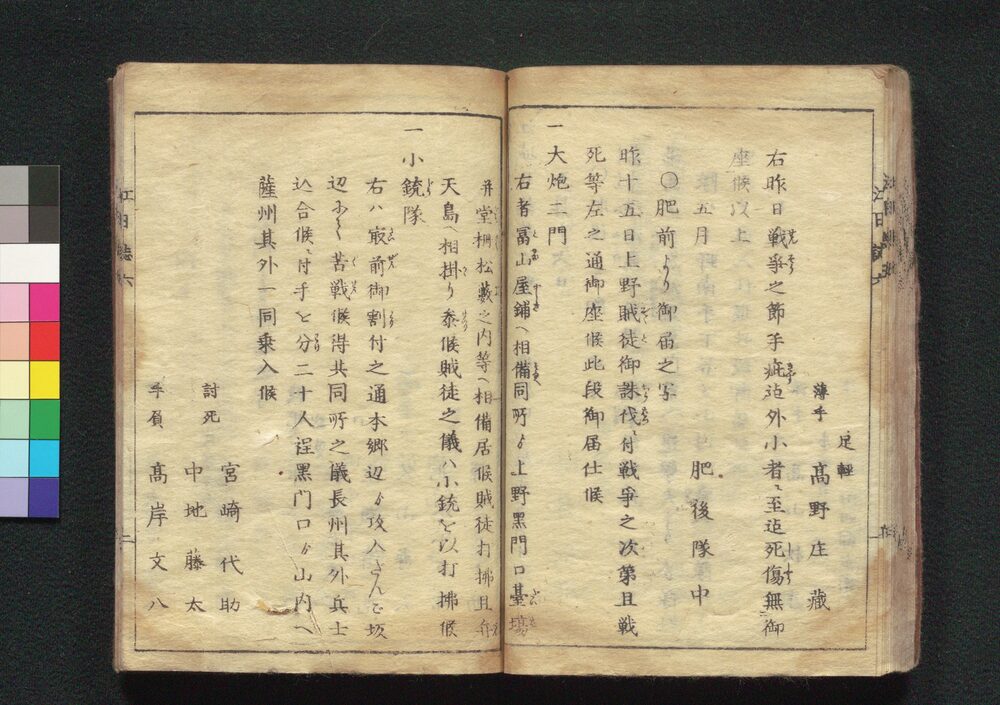 足軽
薄手 高野庄蔵
右昨日戦争之節手疵迠外小者ニ至迠死傷無御
座候以上
五月
肥後隊中
〇肥前より御届之写
昨十五日上野賊徒御誅伐ニ付戦争之次第且戦
死等左之通御座候此段御届仕候
一大炮二門
右者冨山屋鋪ヘ相備同所ゟ上野黒門口臺場
并堂柵松藪之内等ヘ相備居候賊徒打拂且弁
天島ヘ相掛り参候賊徒之儀ハ小銃を以打拂候
一小銃隊
右ハ最前御割付之通本郷辺ゟ攻入さんさ坂
辺ニて苦戦候得共同所之儀長州其外兵士
込合候ニ付手を分二十人程黒門口ゟ山内ヘ
薩州其外一同乗入候
討死
宮崎代助
中地藤太
手負 高岸文八